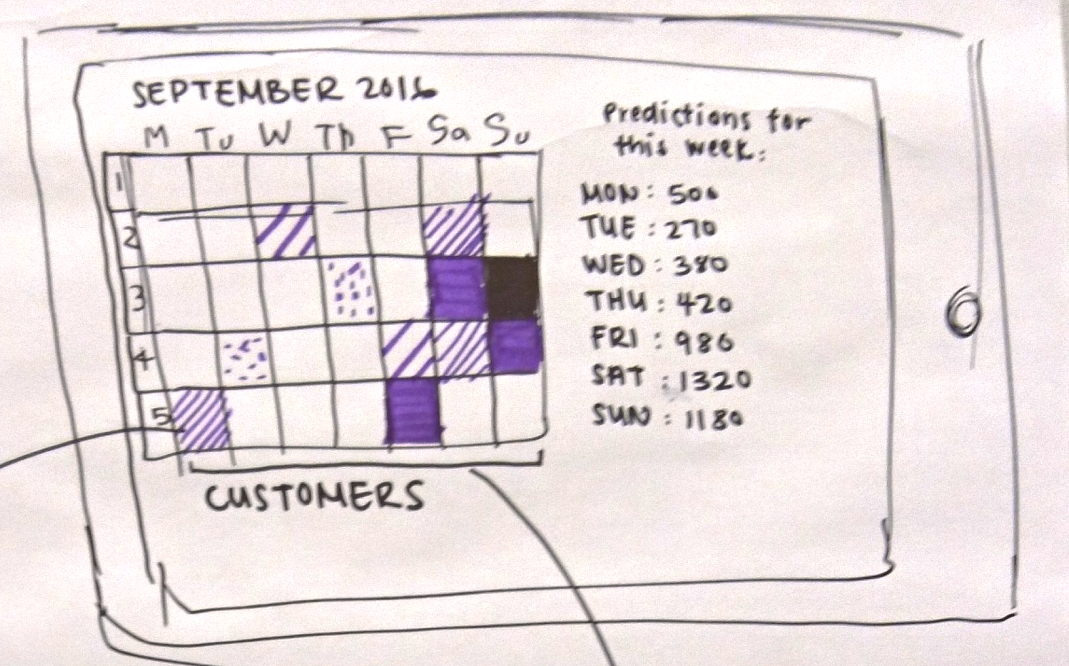 SEPTEMBER 2016
M Tu W Th F Sa Su
1
2
3
4
5
CUSTOMERS
Predictions for
this week:
MON: 500
TUE: 270
WED: 380
THU: 420
FRI: 980
SAT: 1320
SUN: 1180